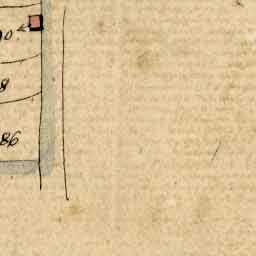 0.
8
86